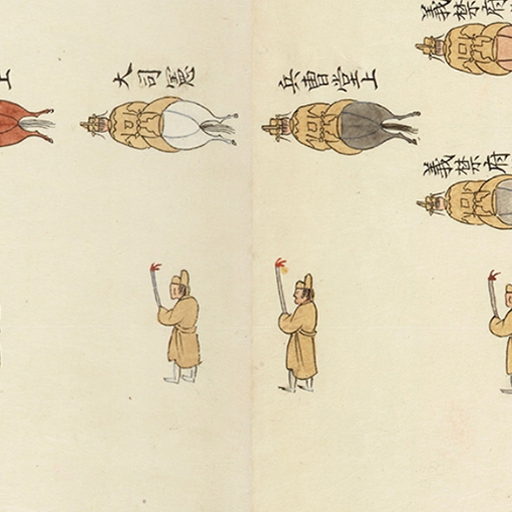 義禁府
上
大司憲
兵曹堂上
義禁府